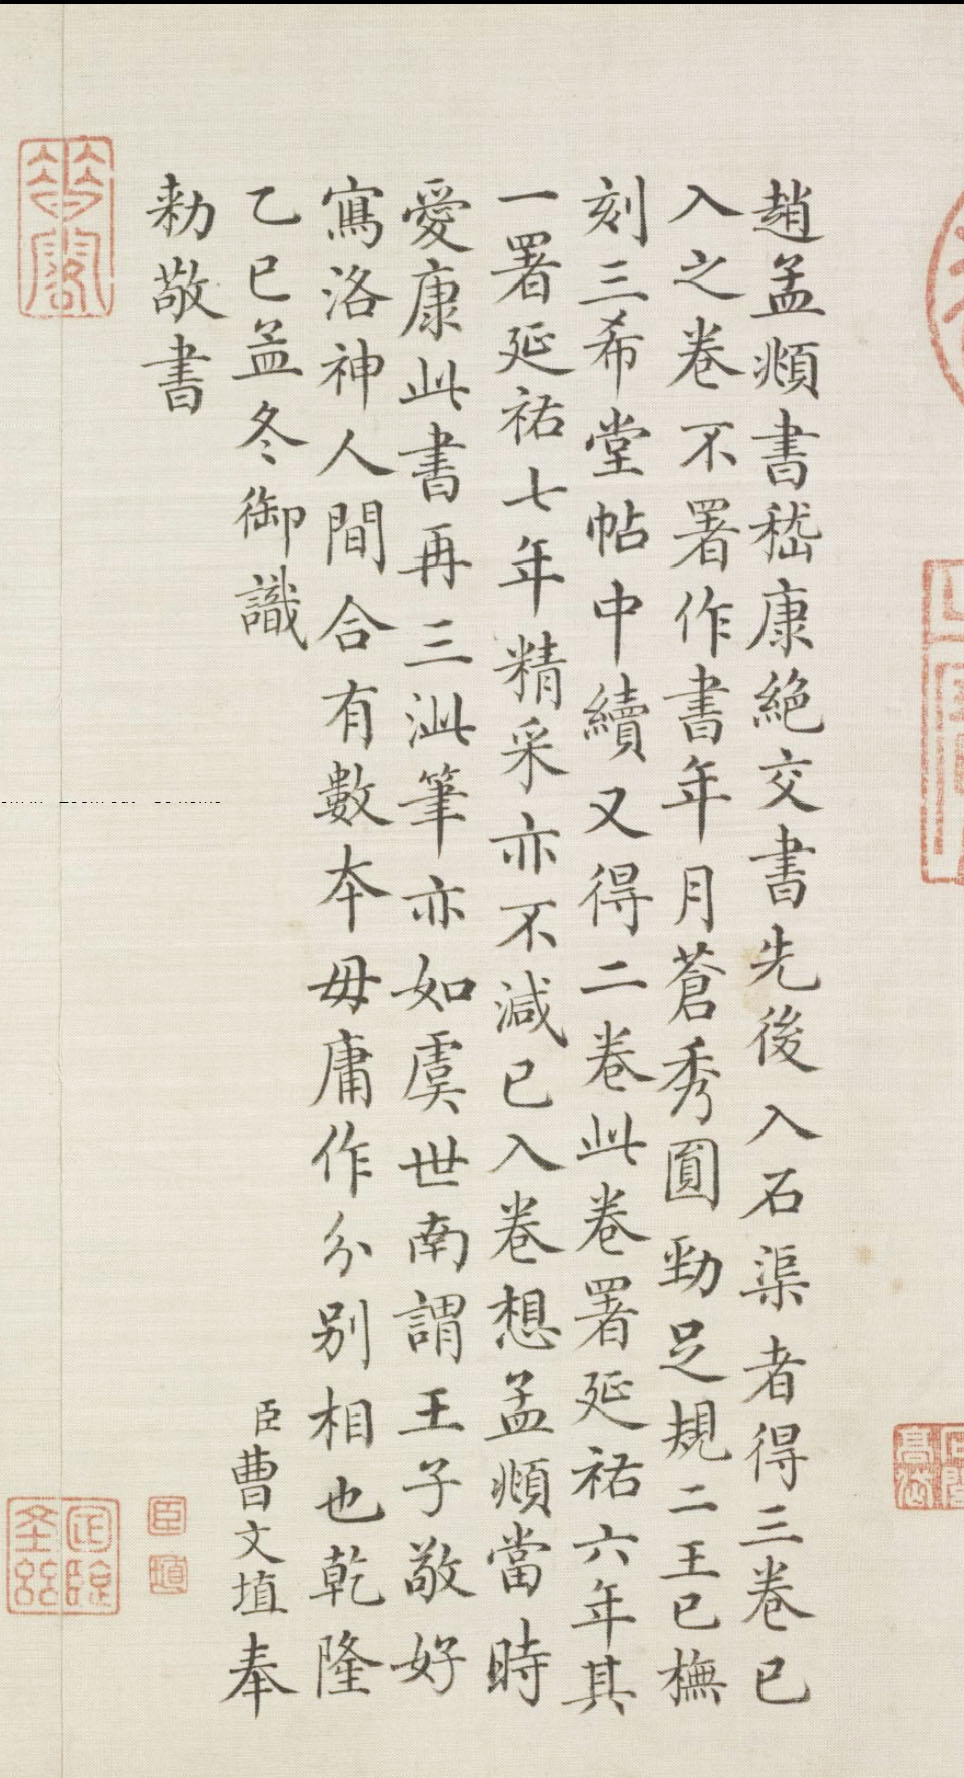 趙孟頫書嵇康絶交書先後入石渠者得三卷已
入之卷不署作書年月蒼秀圓勁足規二王已橅
刻三希堂帖中續又得二卷此卷署延祐六年其
一署延祐七年精采亦不減已入卷想孟頫當時
愛康此書再三泚筆亦如虞世南謂王子敬好
寫洛神人間合有數本毋庸作分别相也乾隆
乙巳孟冬御識
臣曹文埴奉
勑敬書
臣
埴